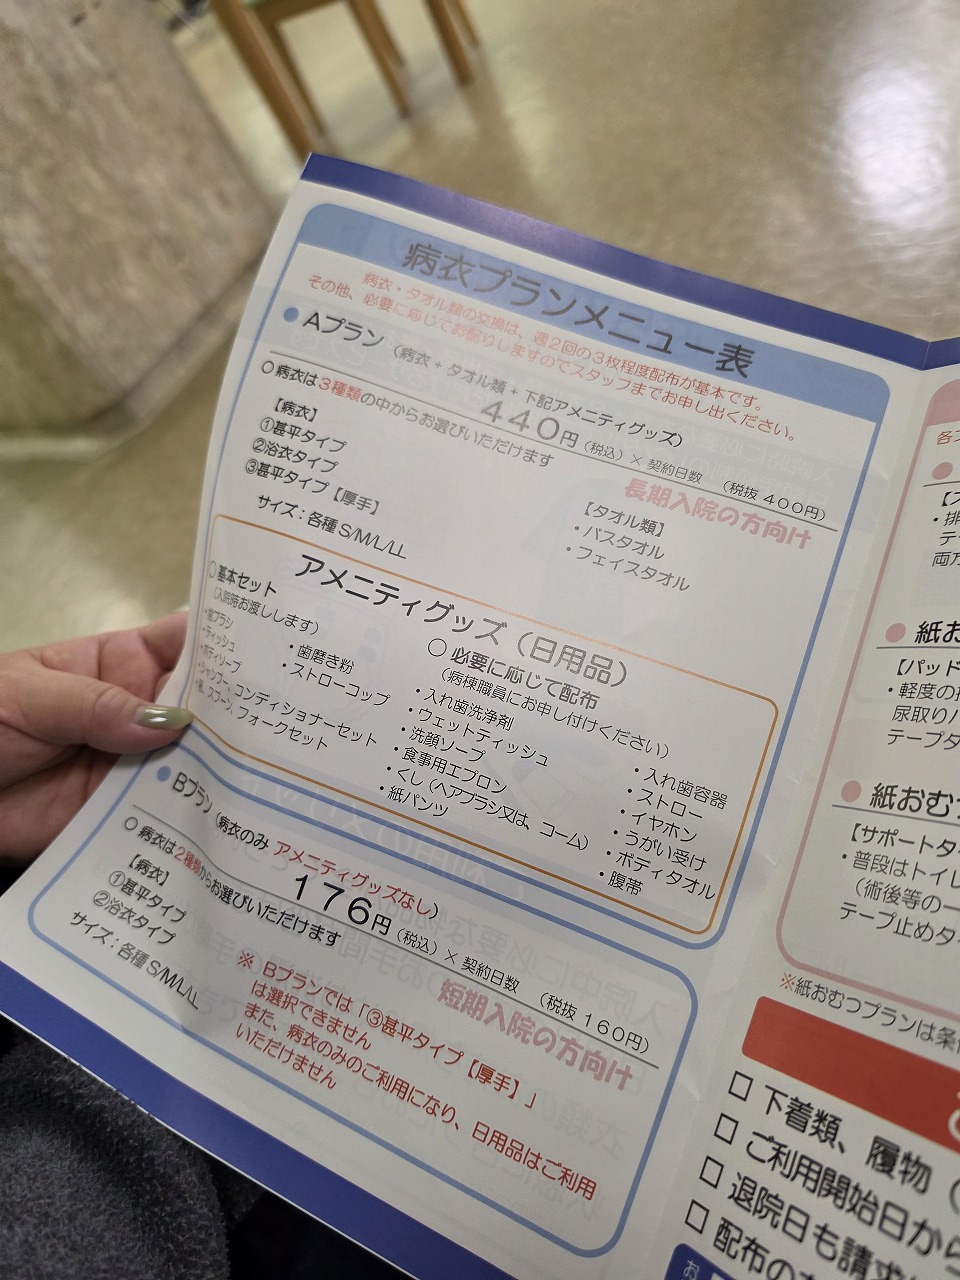 病衣プランメニュー表
病衣・タオル類の交換は、週2回の3枚程度配布が基本です。
その他、必要に応じてお配りしますのでスタッフまでお申し出ください。
●Aプラン（病衣＋タオル類＋下記アメニティグッズ）
440円（税込）×契約日数 （税抜400円）
○病衣は3種類の中からお選びいただけます
長期入院の方向け
【病衣】
①甚平タイプ
②浴衣タイプ
③甚平タイプ【厚手】
サイズ：各種S/M/L/LL
【タオル類】
・バスタオル
・フェイスタオル
アメニティグッズ（日用品）
○基本セット
（入院時お渡しします）
・歯ブラシ
・ティッシュ
・ボディソープ
・シャンプー、コンディショナーセット
・箸、スプーン、フォークセット
・歯磨き粉
・ストローコップ
○必要に応じて配布
（病棟職員にお申し付けください）
・入れ歯洗浄剤
・ウェットティッシュ
・洗顔ソープ
・食事用エプロン
・くし（ヘアブラシ又は、コーム）
・紙パンツ
・入れ歯容器
・ストロー
・イヤホン
・うがい受け
・ボディタオル
・腹帯
●Bプラン（病衣のみ アメニティグッズなし）
176円（税込）×契約日数 （税抜160円）
○病衣は2種類からお選びいただけます
短期入院の方向け
【病衣】
①甚平タイプ
②浴衣タイプ
サイズ：各種S/M/L/LL
※Bプランでは「③甚平タイプ【厚手】」
は選択できません
また、病衣のみのご利用になり、日用品はご利用
いただけません
各
●
・排
テー
両方
●紙お
【パッド
・軽度の
尿取り
テープタ
●紙おむ
【サポートタ
・普段はトイレ
（術後等の一
テープ止めタ
※紙おむつプランは条
□下着類、履物（
□ご利用開始日から
□退院日も請求
□配布の
お